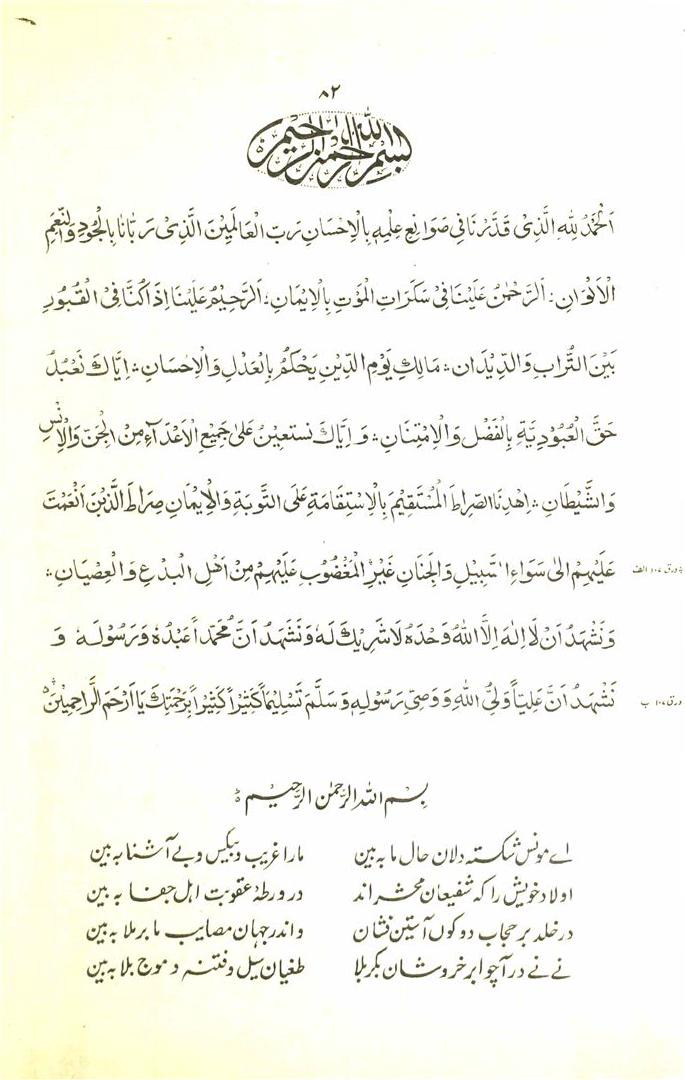 ۸۲
بسم الله الرحمن الرحیم
اَلْحَمْدُ لِلّٰهِ الَّذِیْ قَدَّرَنَا فِیْ صَوَانِعِ عِلْمِهٖ بِالْاِحْسَانِ رَبِّ الْعَالَمِیْنَ الَّذِیْ رَبَّانَا بِالْجُوْدِ وَالنِّعَمِ
الْاَلْوَانِ : اَلرَّحْمٰنُ عَلَیْنَا فِیْ سَکَرَاتِ الْمَوْتِ بِالْاِیْمَانِ ۔ اَلرَّحِیْمُ عَلَیْنَا اِذَا کُنَّا فِی الْقُبُوْرِ
بَیْنَ التُّرَابِ وَالدِّیْدَانِ : مَالِكِ یَوْمِ الدِّیْنِ یَحْکُمُ بِالْعَدْلِ وَالْاِحْسَانِ : اِیَّاكَ نَعْبُدُ
حَقَّ الْعُبُوْدِیَّةِ بِالْفَضْلِ وَالْاِمْتِنَانِ : وَاِیَّاكَ نَسْتَعِیْنُ عَلیٰ جَمِیْعِ الْاَعْدَآءِ مِنَ الْجِنِّ وَالْاِنْسِ
وَالشَّیْطَانِ : اِهْدِنَا الصِّرَاطَ الْمُسْتَقِیْمَ بِالْاِسْتِقَامَةِ عَلَی التَّوْبَةِ وَالْاِیْمَانِ صِرَاطَ الَّذِیْنَ اَنْعَمْتَ
عَلَیْهِمْ اِلیٰ سَوَاءِ السَّبِیْلِ وَالْجِنَانِ غَیْرِ الْمَغْضُوْبِ عَلَیْهِمْ مِنْ اَهْلِ الْبِدْعِ وَالْعِصْیَانِ :
ورق ۱۰۷ الف
وَنَشْهَدُ اَنْ لَا اِلٰهَ اِلَّا اللّٰهُ وَحْدَهٗ لَا شَرِیْكَ لَهٗ وَنَشْهَدُ اَنَّ مُحَمَّداً عَبْدُهٗ وَرَسُوْلُهٗ وَ
نَشْهَدُ اَنَّ عَلِیّاً وَلِیُّ اللّٰهِ وَوَصِیُّ رَسُوْلِهٖ وَسَلَّمَ تَسْلِیْماً کَثِیْراً کَثِیْراً بِرَحْمَتِكَ یَا اَرْحَمَ الرَّاحِمِیْنَ
ورق ۱۰۷ ب
بِسْمِ اللهِ الرَّحْمٰنِ الرَّحِیْمِ
اے مونس شکستہ دلان حال ما بہ بین    مارا غریب و بیکس و بے آشنا بہ بین
اولاد خویش را کہ شفیعان محشر اند    در ورطۂ عقوبت اہل جفا بہ بین
در خلد بر حجاب دو کوں آستین فشان    و اندر جہان مصایب ما برملا بہ بین
نے نے در آ چو ابر خروشان بکربلا    طغیان سیل و فتنہ و موج بلا بہ بین